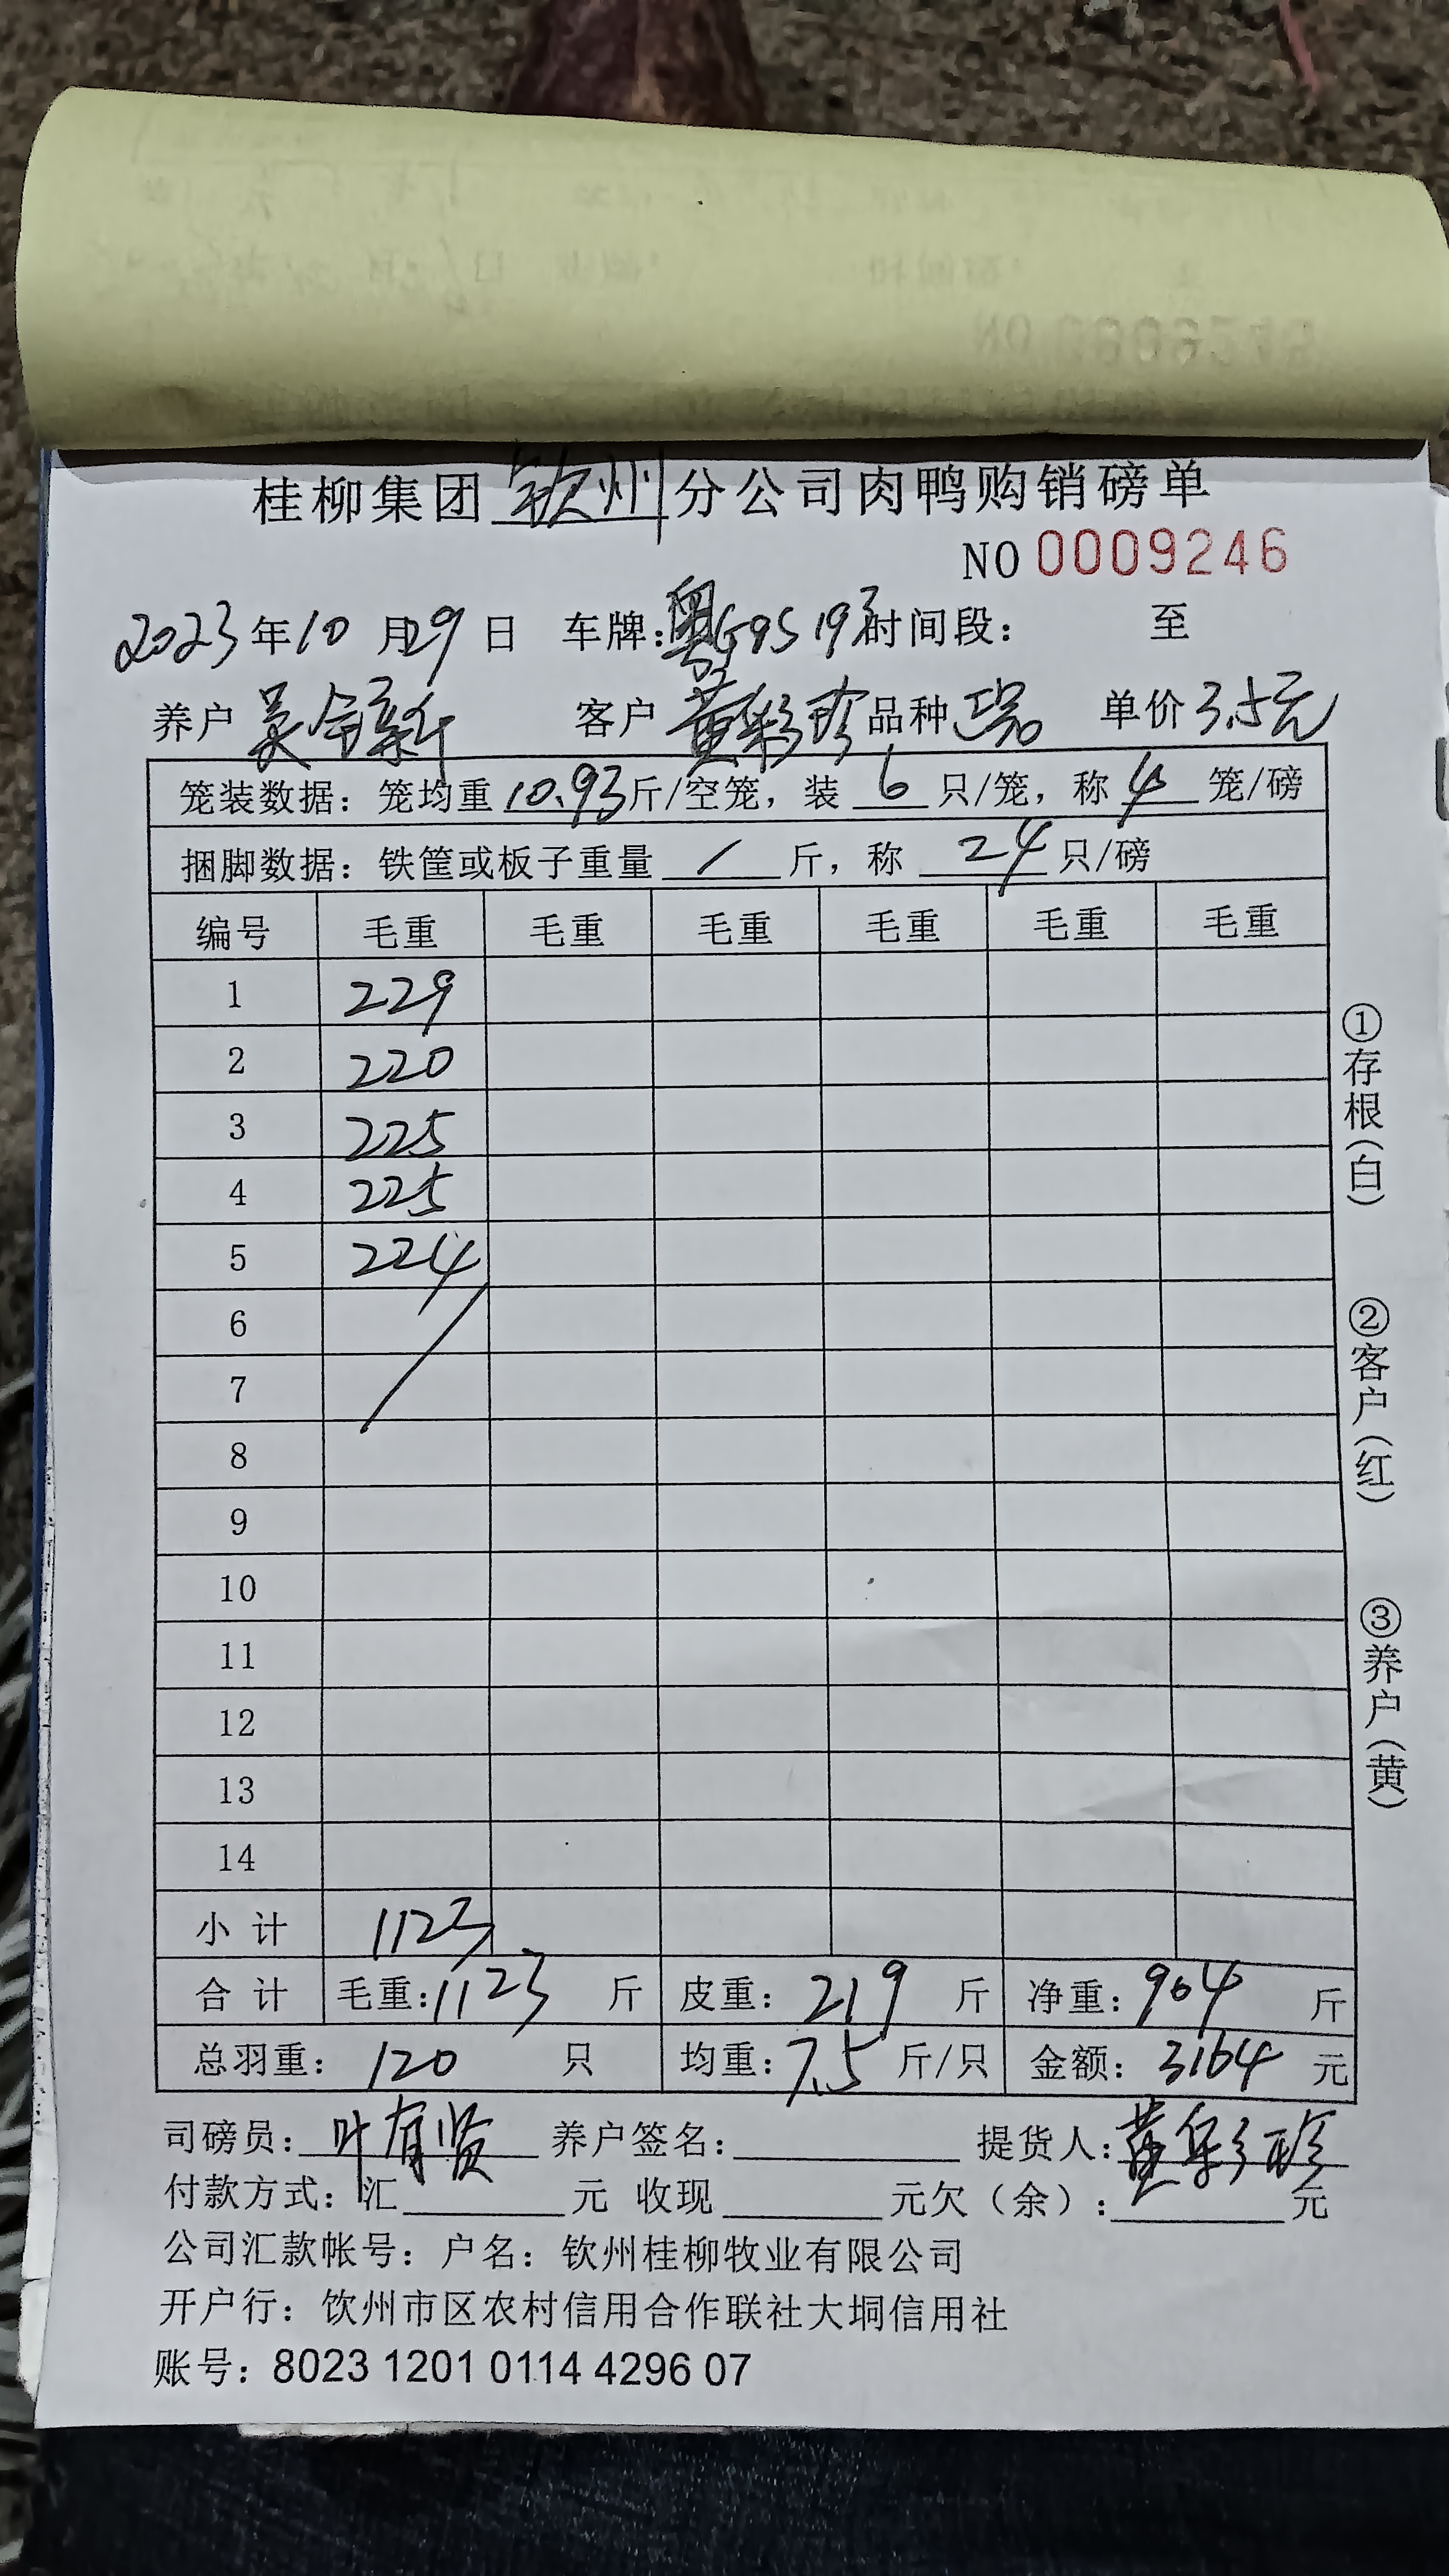 桂柳集团钦州分公司肉鸭购销磅单
NO 0009246
2023年10月29日 车牌:粤G95193 时间段: 至
养户 吴金新 客户 黄彩珍 品种 瑞 单价3.5元
笼装数据：笼均重10.93斤/空笼，装 6 只/笼，称 4 笼/磅
捆脚数据：铁筐或板子重量 / 斤，称 24 只/磅
编号 毛重 毛重 毛重 毛重 毛重 毛重
1 229
2 220
3 225
4 225
5 224
6
7
8
9
10
11
12
13
14
小计 1123
合计 毛重:1123 斤 皮重: 219 斤 净重: 904 斤
总羽重: 120 只 均重: 7.5 斤/只 金额: 3164 元
司磅员: 叶有贤 养户签名: 提货人: 黄彩珍
付款方式: 汇 元 收现 元欠（余）: 元
公司汇款帐号：户名：钦州桂柳牧业有限公司
开户行：饮州市区农村信用合作联社大垌信用社
账号：8023 1201 0114 4296 07
①存根(白)
②客户(红)
③养户(黄)